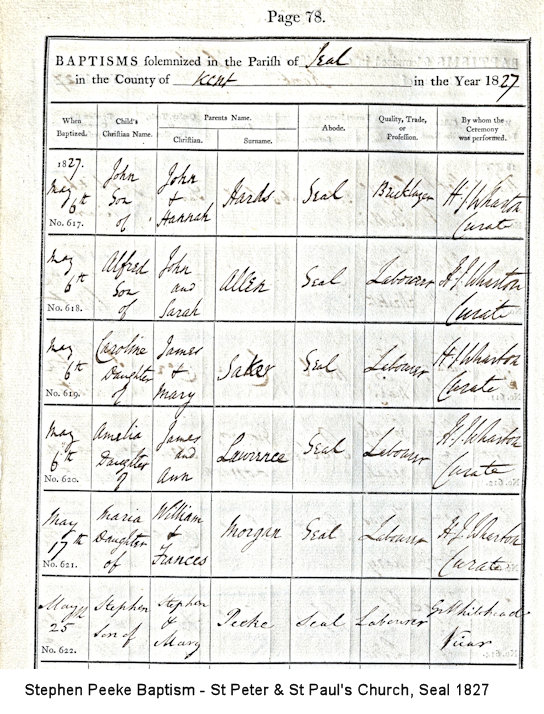 Page 78.
BAPTISMS solemnized in the Parish of Seal
in the County of Kent in the Year 1827
When Baptized. Child's Christian Name. Parents Name. Christian. Surname. Abode. Quality, Trade, or Profession. By whom the Ceremony was performed.
1827. May 6th No. 617. John Son of John & Hannah Hards Seal Bricklayer H J Wharton Curate
May 6th No. 618. Alfred Son of John and Sarah Allen Seal Labourer H J Wharton Curate
May 6th No. 619. Caroline Daughter of James & Mary Saker Seal Labourer H J Wharton Curate
May 6th No. 620. Amelia Daughter of James and Ann Lawrence Seal Labourer H J Wharton Curate
May 17th No. 621. Maria Daughter of William & Frances Morgan Seal Labourer H J Wharton Curate
May 25 No. 622. Stephen Son of Stephen & Mary Peeke Seal Labourer Vicar
Stephen Peeke Baptism - St Peter & St Paul's Church, Seal 1827